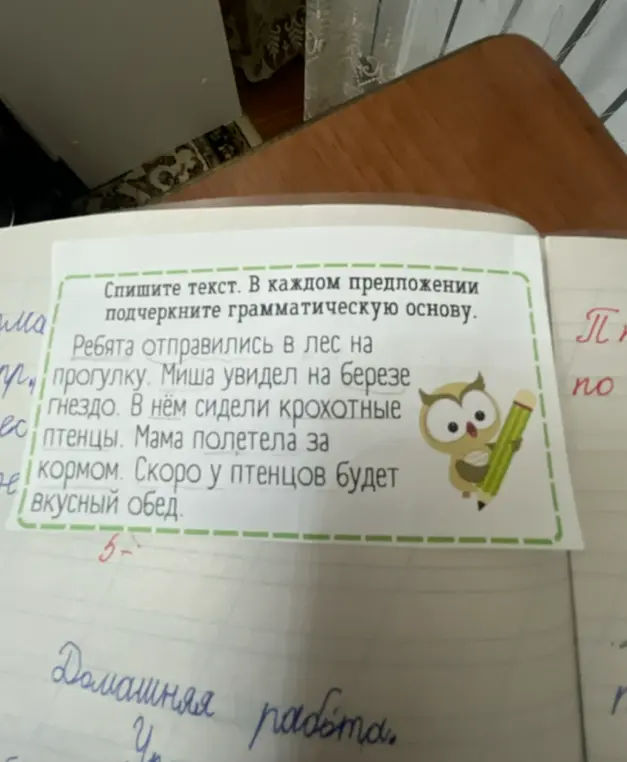 Спишите текст. В каждом предложении
подчеркните грамматическую основу.
Ребята отправились в лес на
прогулку. Миша увидел на березе
гнездо. В нём сидели крохотные
птенцы. Мама полетела за
кормом. Скоро у птенцов будет
вкусный обед.
5-
Домашняя работа.
по